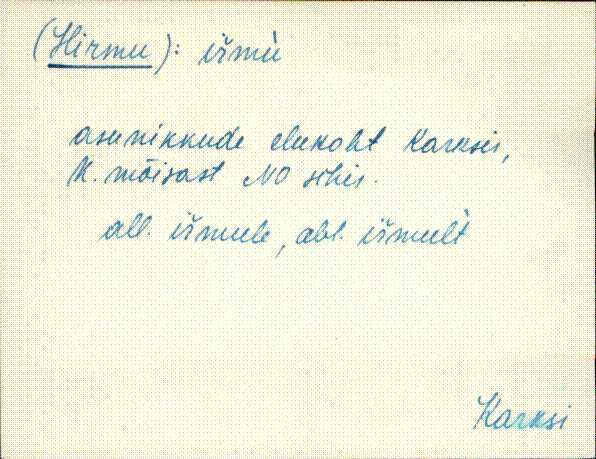 (Hirmu): iŕmù
asunikkude elukoht Karksis,
K. mõisast NO sihis.
all. iŕmule, abl. iŕmult̀
Karksi